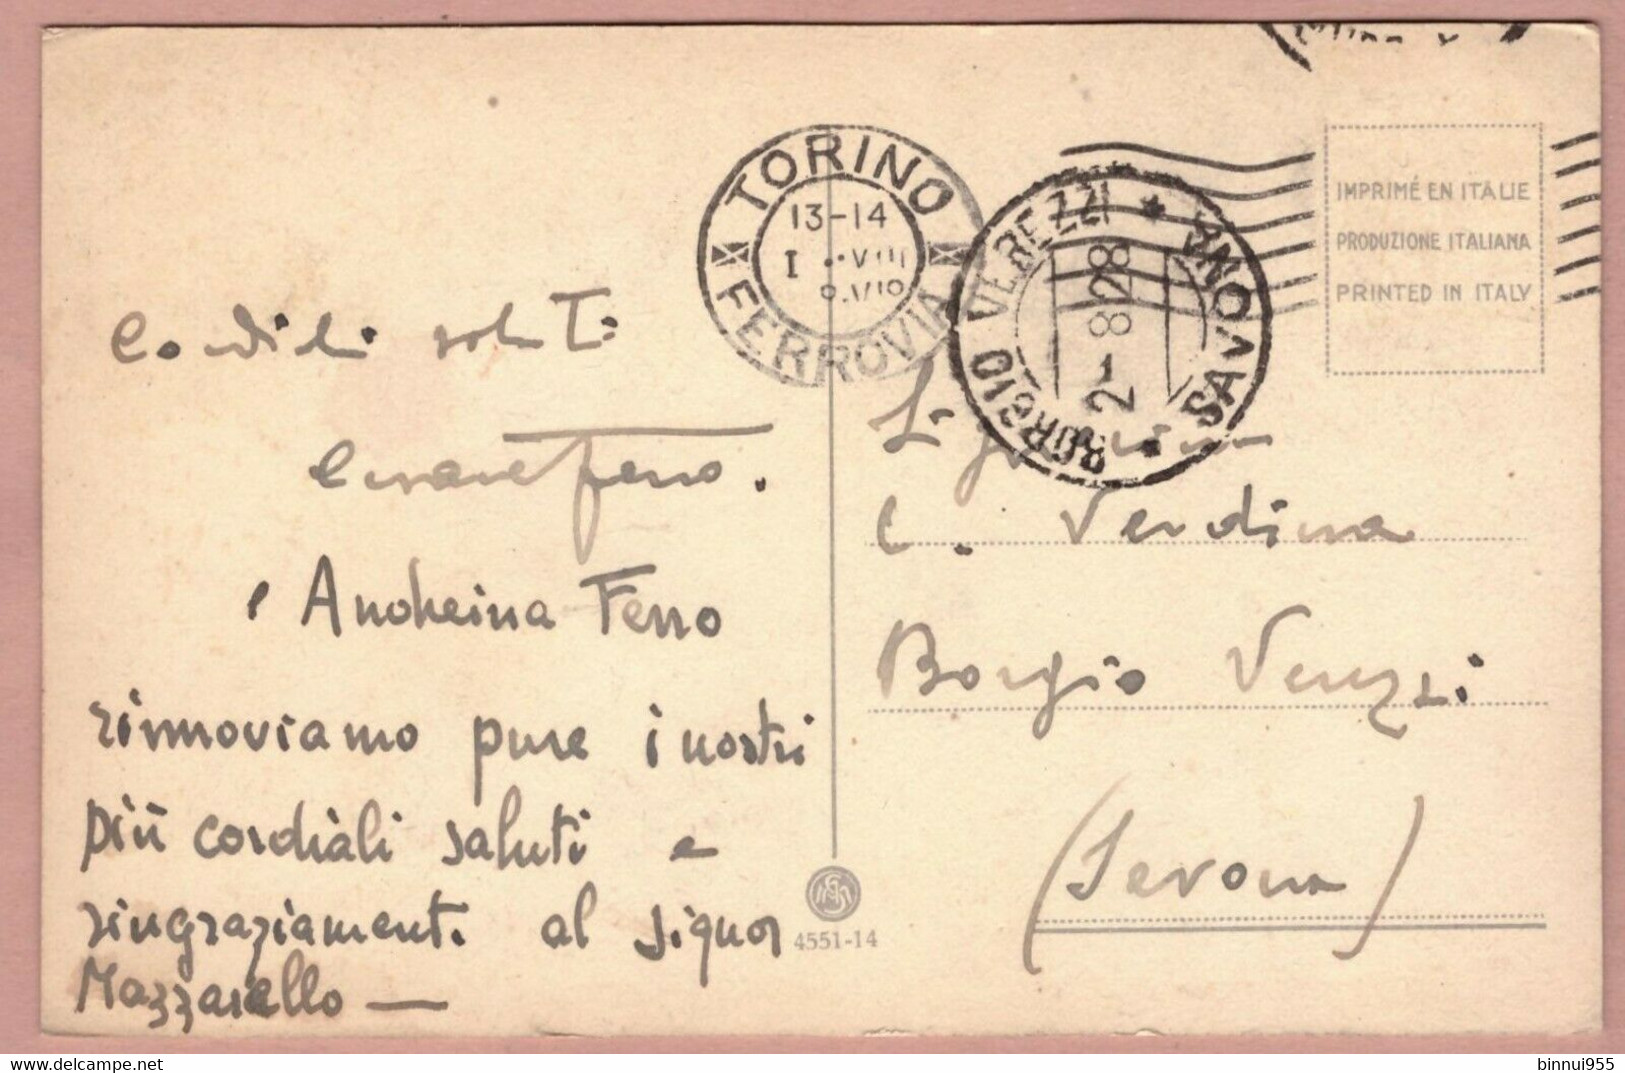 Cordiali saluti
Cesare Ferro.
e Andreina Ferro
rinnoviamo pure i nostri
più cordiali saluti e
ringraziamenti al signor
Mazzarello —
TORINO
13-14
I VIII
FERROVIA
BORGIO VEREZZI * SAVONA *
2-8 28
IMPRIMÉ EN ITALIE
PRODUZIONE ITALIANA
PRINTED IN ITALY
C. Verdina
Borgio Verezzi
(Savona)
4551-14
binnui955